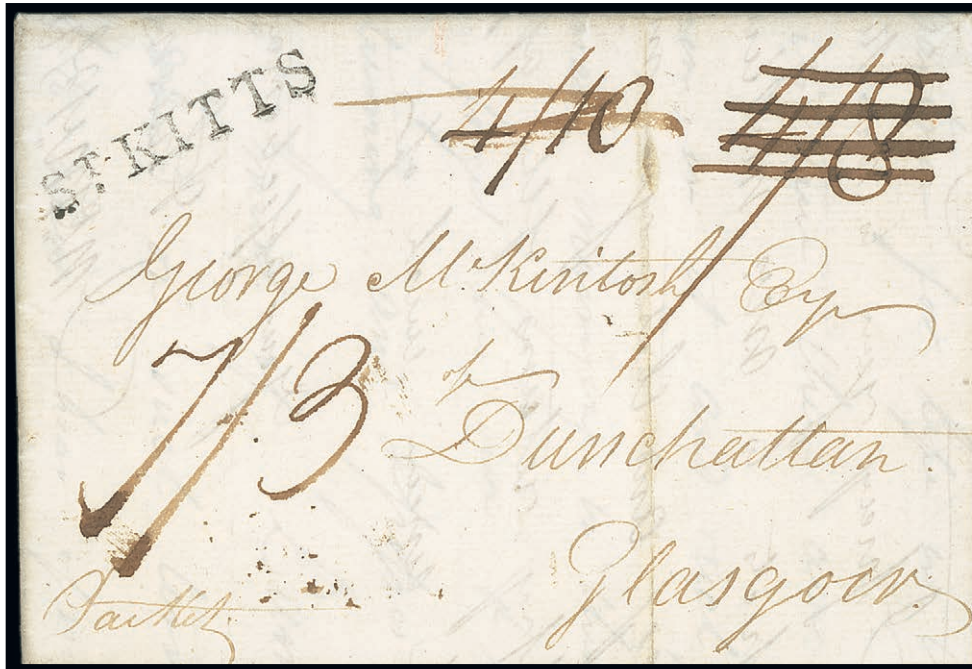 St. KITTS
4/10 4/8
George McKintosh Esqr
of
7/3
Dunchattan.
Glasgow.
Packet